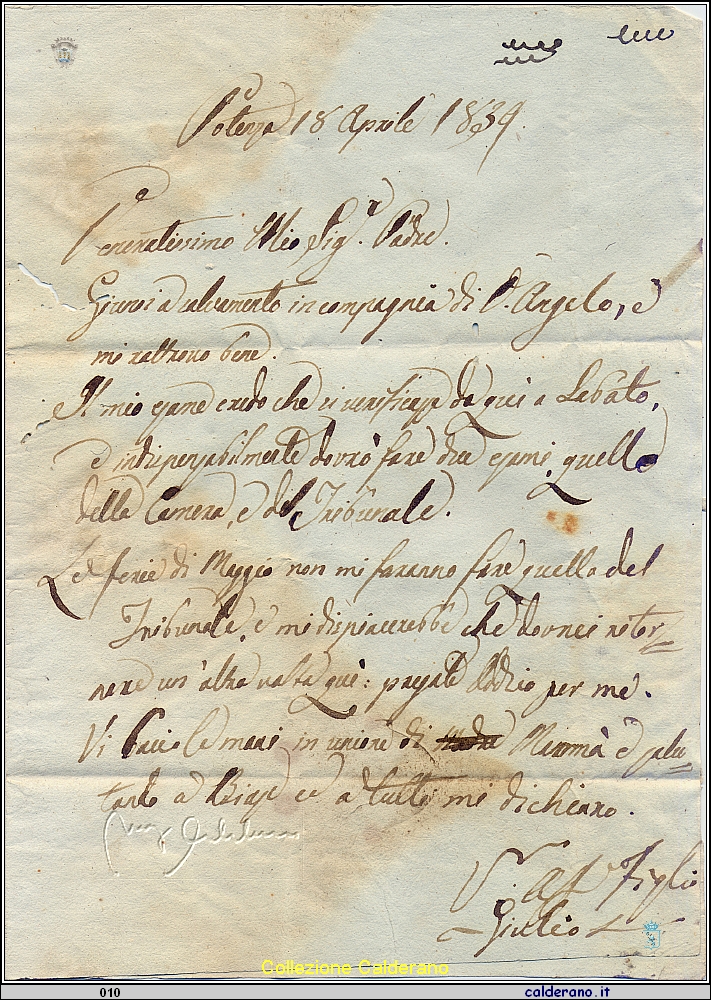 Potenza 18 Aprile 1839.
Veneratissimo Mio Sig.r Padre.
Giunsi a salvamento in compagnia di D. Angelo, e
mi ritrovo bene.
Il mio esame credo che si verifica da quì a Sabato,
e indispensabilmente dovrò fare due esami, quello
della Camera, e del Tribunale.
Le ferie di Maggio non mi faranno fare quello del
Tribunale, e mi dispiacerebbe che dovrei ritor=
nare un'altra volta quì: pregate Iddio per me.
Vi bacio le mani in unione di Mammà e salu=
tando a Biase ed a tutti mi dichiaro.
V. Aff.o Figlio
Giulio
Collezione Calderano
010
calderano.it